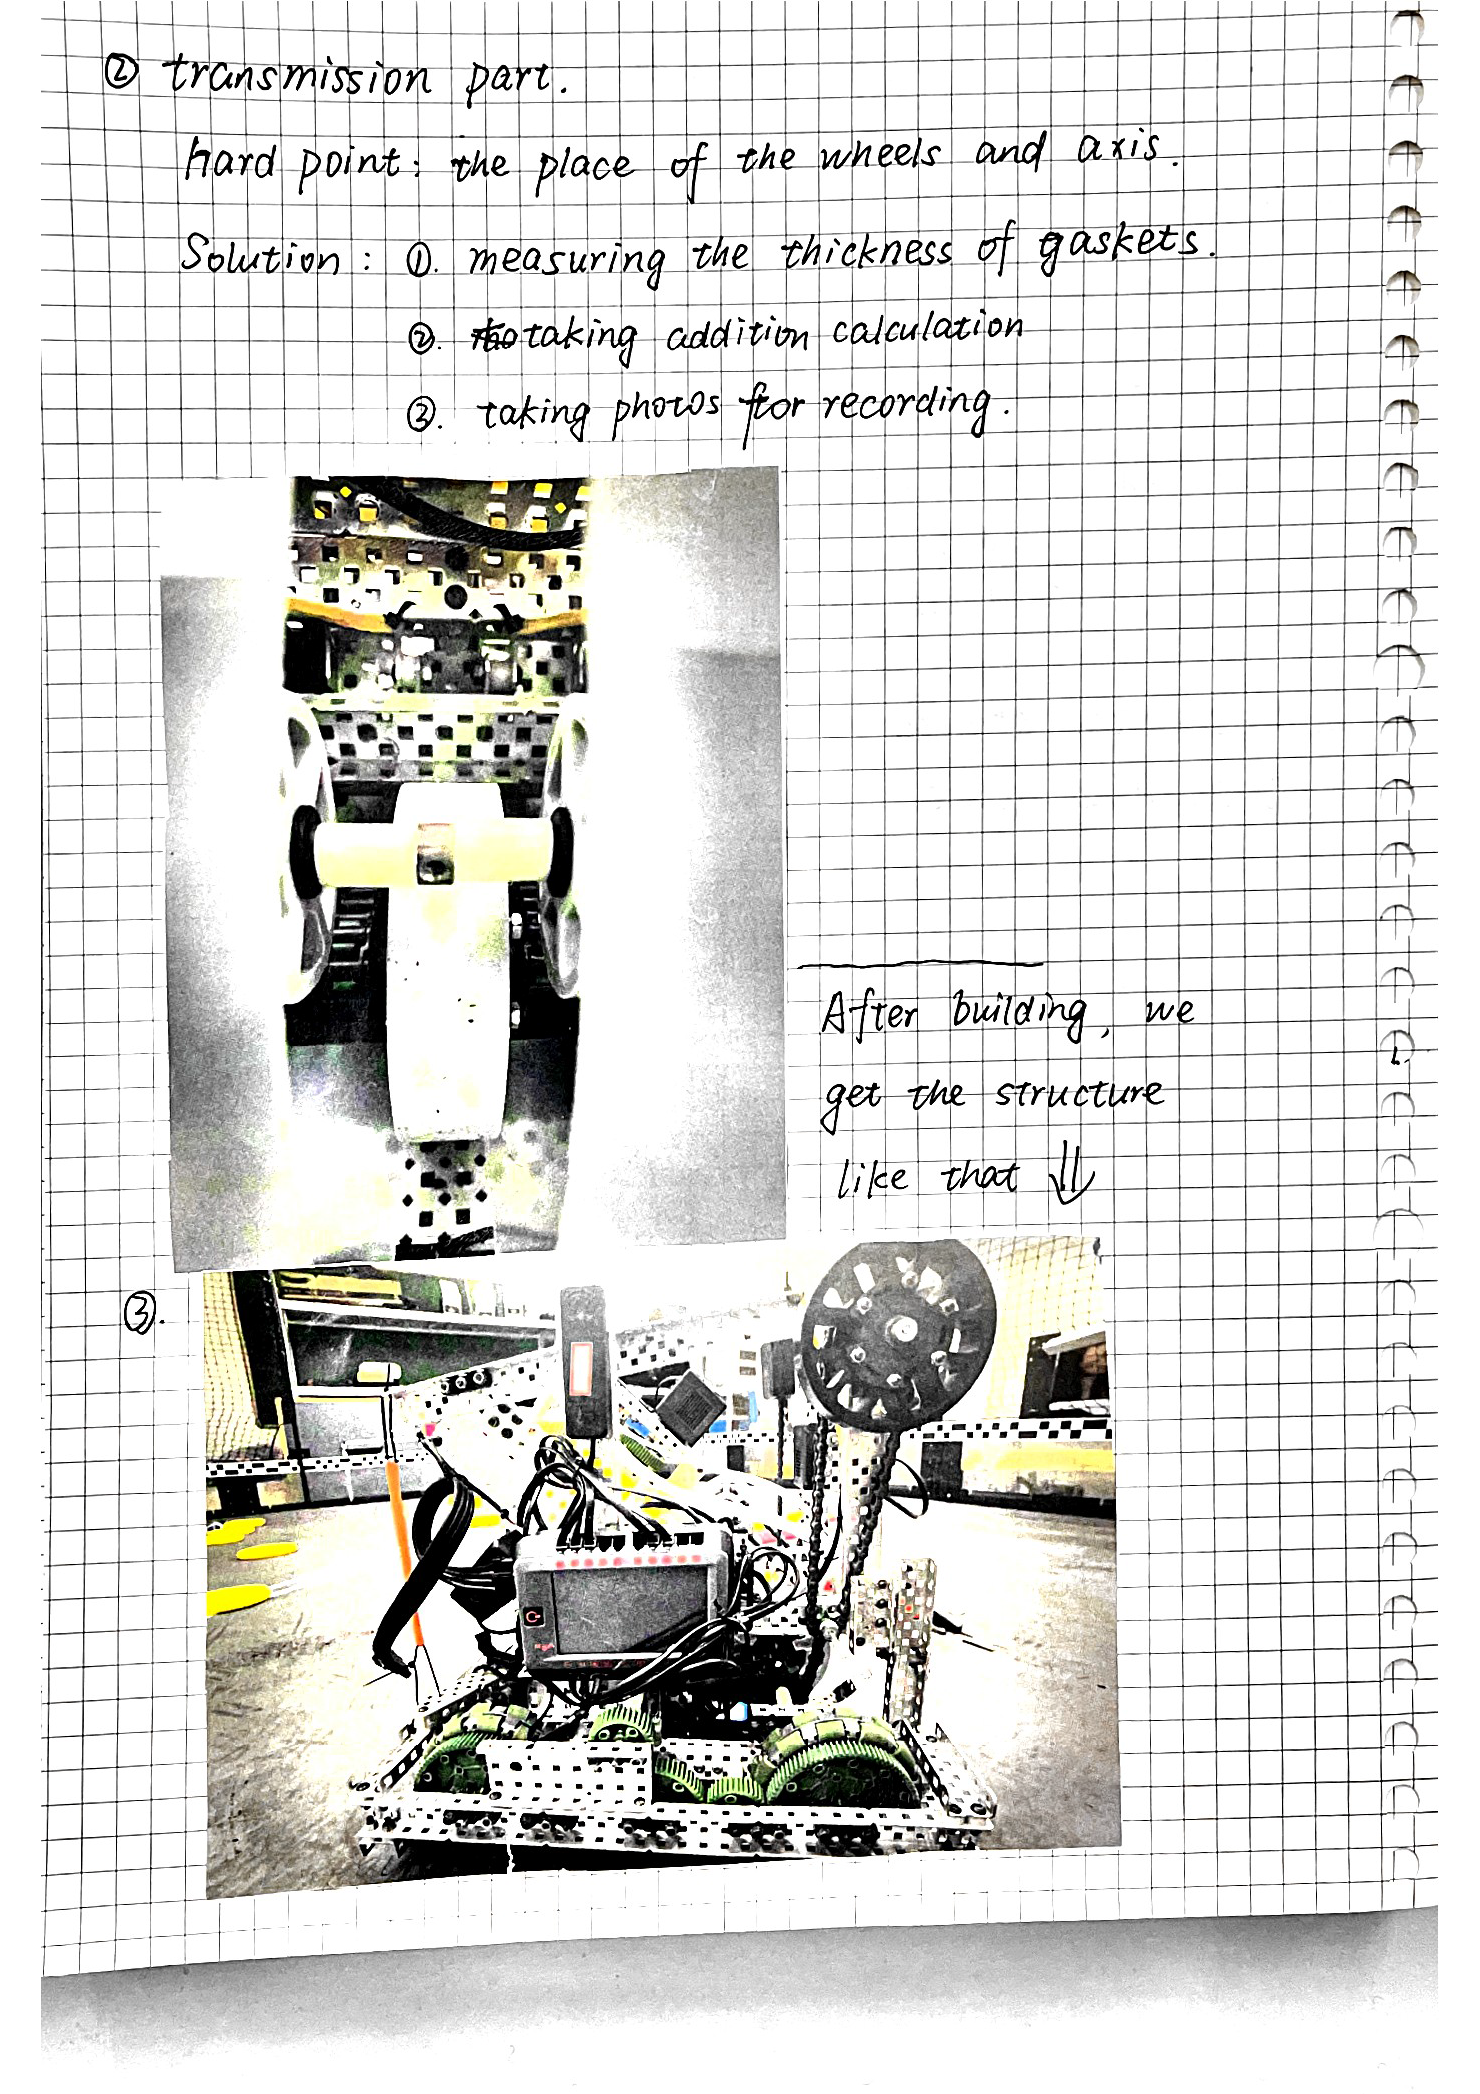 ② transmission part.
hard point: the place of the wheels and axis.
Solution: ①. measuring the thickness of gaskets.
②. taking addition calculation
③. taking photos for recording.
After building, we
get the structure
like that ⇓
③.